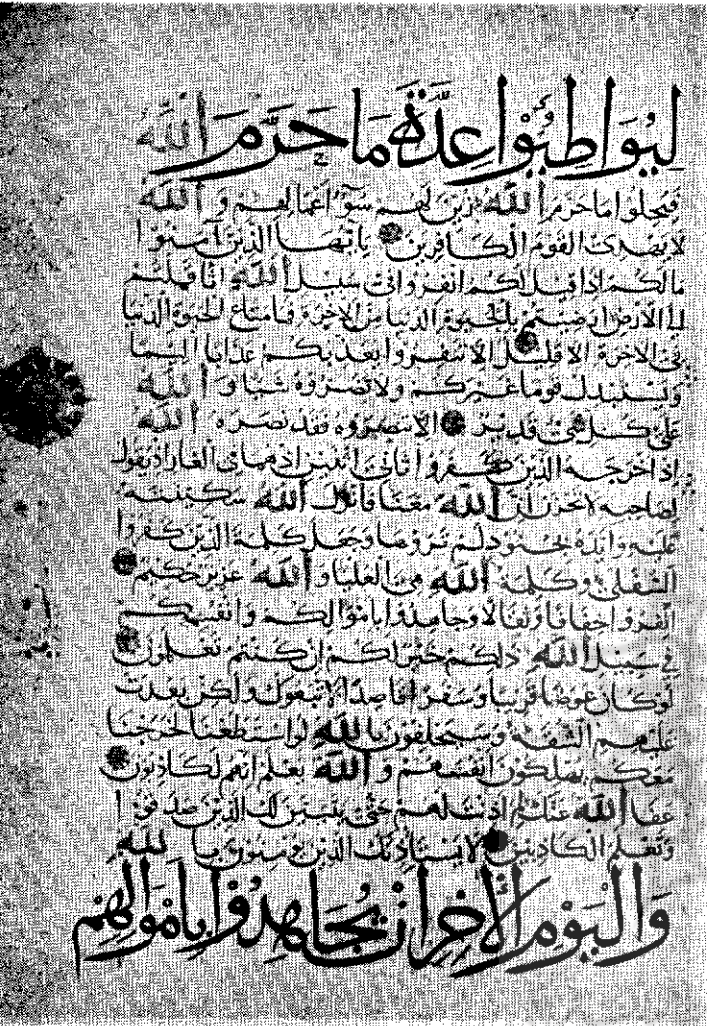 ليواطئوا عدة ما حرم الله
فيحلوا ما حرم الله زين لهم سوء اعمالهم و الله
لا يهدى القوم الكافرين يا ايها الذين آمنوا
ما لكم اذا قيل لكم انفروا فى سبيل الله اثاقلتم
الى الارض ارضيتم بالحيوة الدنيا من الاخرة فما متاع الحيوة الدنيا
فى الاخرة الا قليل الا تنفروا يعذبكم عذابا اليما
ويستبدل قوما غيركم ولا تضروه شيا و الله
على كل شئ قدير الا تنصروه فقد نصره الله
اذ اخرجه الذين كفروا ثانى اثنين اذ هما فى الغار اذ يقول
لصاحبه لا تحزن ان الله معنا فانزل الله سكينته
عليه وايده بجنود لم تروها وجعل كلمة الذين كفروا
السفلى وكلمة الله هى العليا و الله عزيز حكيم
انفروا خفافا وثقالا وجاهدوا باموالكم وانفسكم
فى سبيل الله ذلكم خير لكم ان كنتم تعلمون
لو كان عرضا قريبا وسفرا قاصدا لاتبعوك ولكن بعدت
عليهم الشقة وسيحلفون بالله لو استطعنا لخرجنا
معكم يهلكون انفسهم و الله يعلم انهم لكاذبون
عفا الله عنك لم اذنت لهم حتى يتبين لك الذين صدقوا
وتعلم الكاذبين لا يستاذنك الذين يؤمنون بالله
واليوم الاخر ان يجاهدوا باموالهم